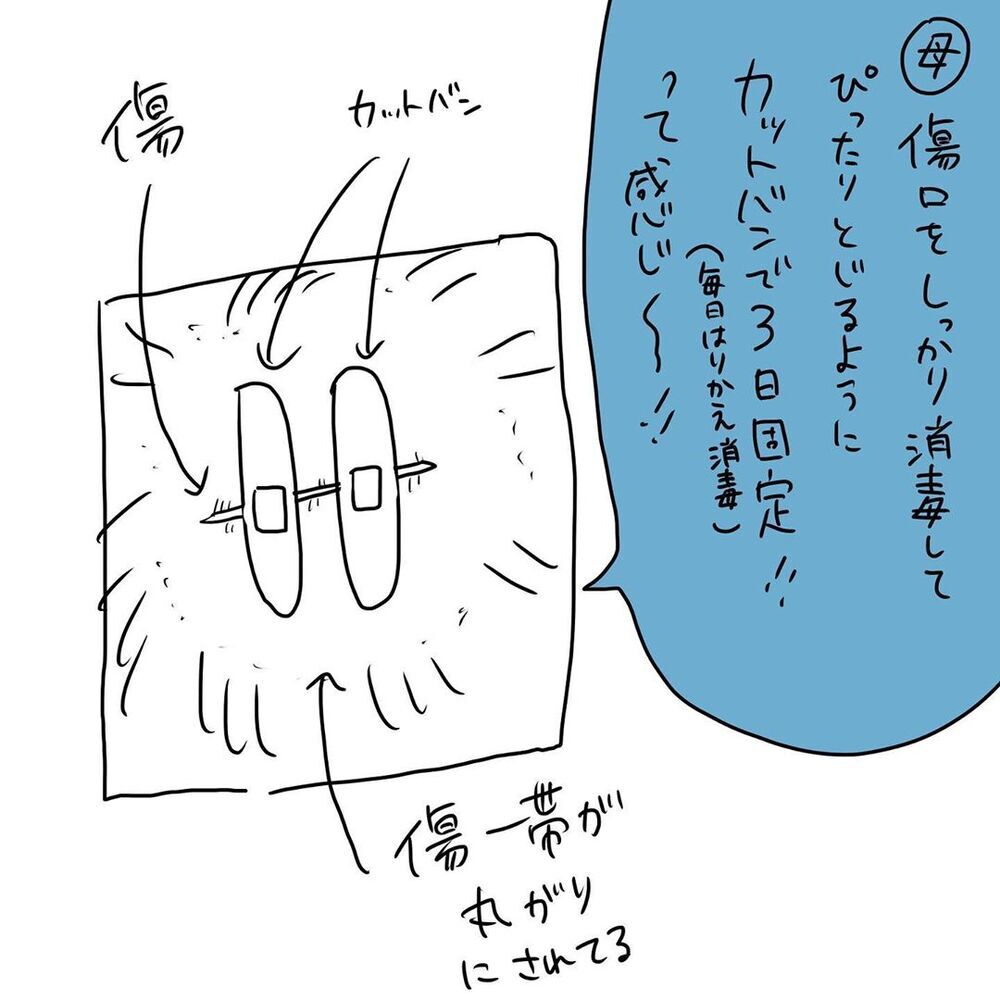 母 傷口をしっかり消毒して
ぴったりとじるように
カットバンで3日固定!!
(毎日はりかえ消毒)
って、感じ〜!!
カットバン
傷
傷一帯が
丸がり
にされてる